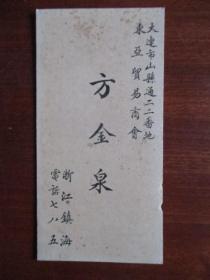 大連市山縣通二二番地
東亞貿易商會
方金泉
浙江鎮海
電話七八五